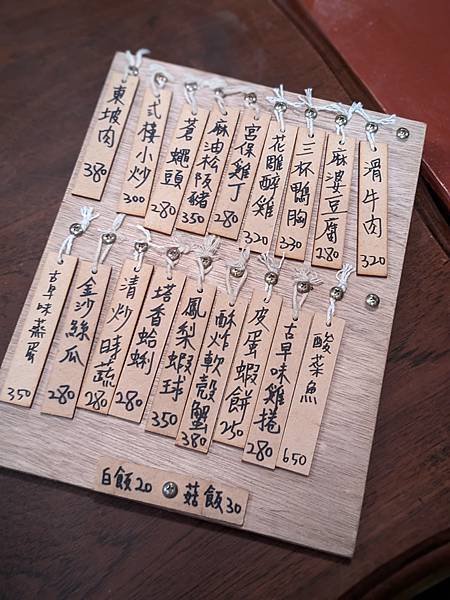 東坡肉 380
弍樓小炒 300
蒼蠅頭 280
麻油松阪豬 350
宮保雞丁 280
花雕醉雞 320
三杯鴨胸 330
麻婆豆腐 180
滑牛肉 320
古早味蒸蛋 350
金沙絲瓜 280
清炒時蔬 280
塔香蛤蜊 280
鳳梨蝦球 350
酥炸軟殼蟹 380
皮蛋蝦餅 250
古早味雞捲 280
酸菜魚 650
白飯20 菇飯30